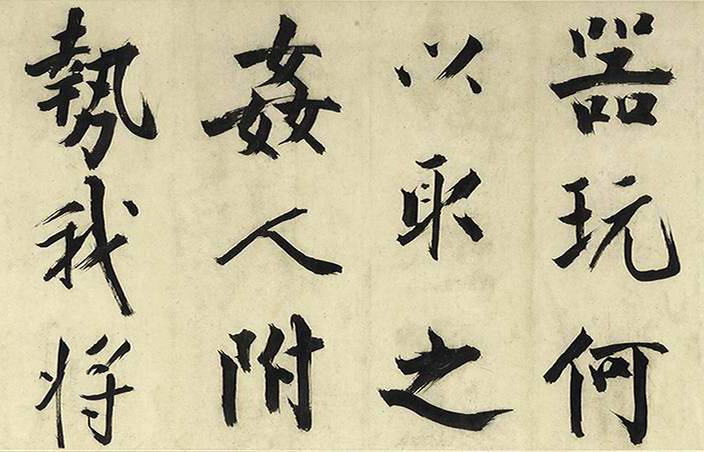 器玩何
以取之
姦人附
勢我将